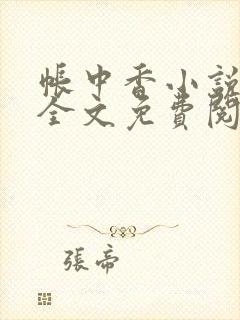 帳中香小說
全文免費閱
張帝